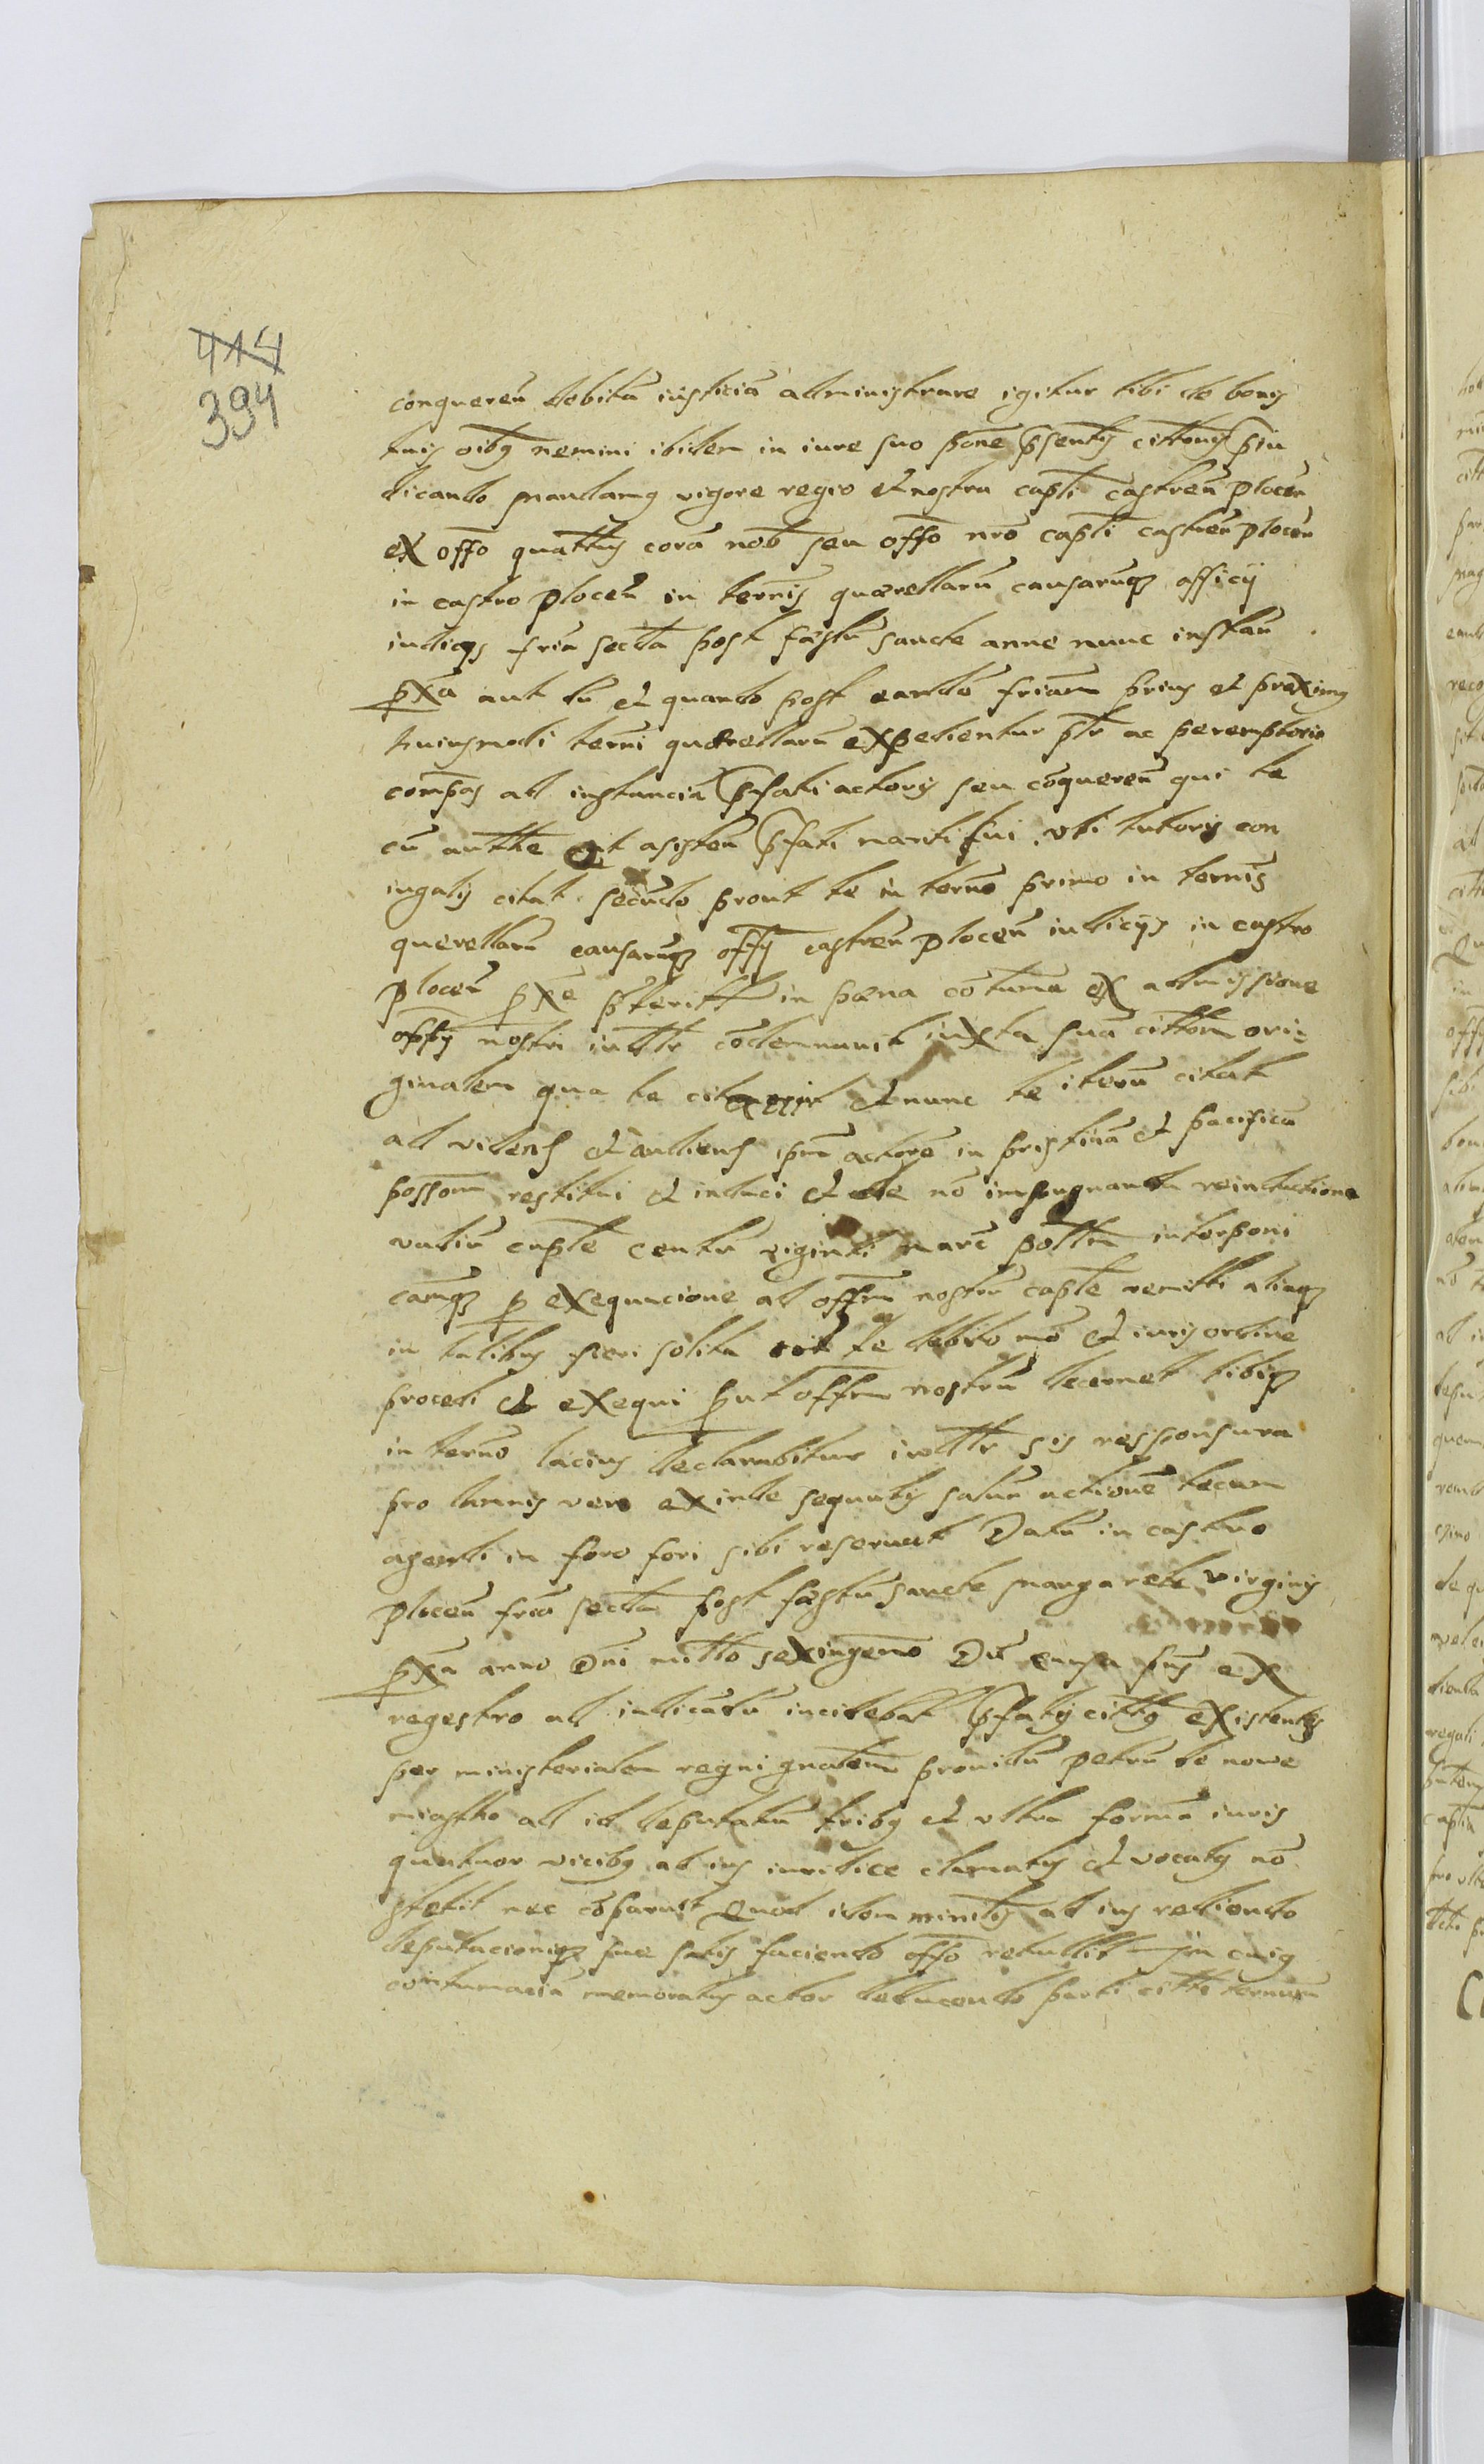 414
394
conqueren̄ debitā iusticiā administrare igitur tibi de bonis
tuis oībꝫ nemini ibidem in iure suo p̄one p̄sentis citt̄onis p̄iu
dicando mandamꝫ vigore regio et nostra capt̄i castren̄ plocen̄
ex offō quatt̄us corā nob̄ seu offō nrō capt̄i castren̄ plocen̄
in castro plocen̄ in termīs quærellarū causarumqꝫ officij
iudicijs friā secūda post fæstū sancte anne nunc instan̄
p̄xa aut tū et quando post eandē friam prius et proximꝫ
huiusmodi termī quærellarū expedientur p̄tr̄ ac peremptorie
compas̄ ad instanciā p̄fati actoris seu cōqueren̄ qui te
cū autt̄te et asisten̄ p̄fati mariti tui vti tutoris con
iugalis citat secūdo prout te in terṁo primo in termīs
querellarū causarumqꝫ offȳ castren̄ plocen̄ iudicijs in castro
plocen̄ p̄xe p̄teritt in pæna cōtumā ex admissione
offȳ nostri iudt̄r cōdemnauit iuxta suā citt̄om ori=
ginalem qua te et nunc te iterū citat
ad videnȝ et audienȝ ipm̄ actorē in pristinā et pacificā
possom̄ restitui et induci et de nō impugnanda reinductione
vadiū capt̄e centū viginti marc̄ pōltm̄ interponi
camqꝫ p exequucione ad offm̄ nostrū capt̄e remitti aliaqꝫ
in talibus fieri solita te debito mō et iuris ordine
procedi et exequi p̄ut offm̄ nostrū decernet tibiqꝫ
in terṁo lacius declarabitur iudt̄r sis responsura
pro damnis vero exinde sequutis saluā actionē tecum
agendi in foro fori sibi reseruat Datū in castro
plocen̄ friā secūda post fæstū sancte margarete virginis
p̄xa anno Dn̄i mill̄o sexingen̄o Dū causa p̄us ex
regestro ad iudicandū incidebat p̄fatis citt̄is existentis
per ministerialem regni gnalem̄ prouidū petrū de nowe
miasto ad id deputatū tribꝫ et vltra formā iuris
quatuor vicibꝫ ad ius iuridice clamatis et vocatis nō
stetit nec cōparuit Quod idem minītlis ad ius rediendo
deputacioniqꝫ sue satis faciendo offō retullit In cuiꝫ
contumaciā memoratus actor deducendo parti citt̄i terminum